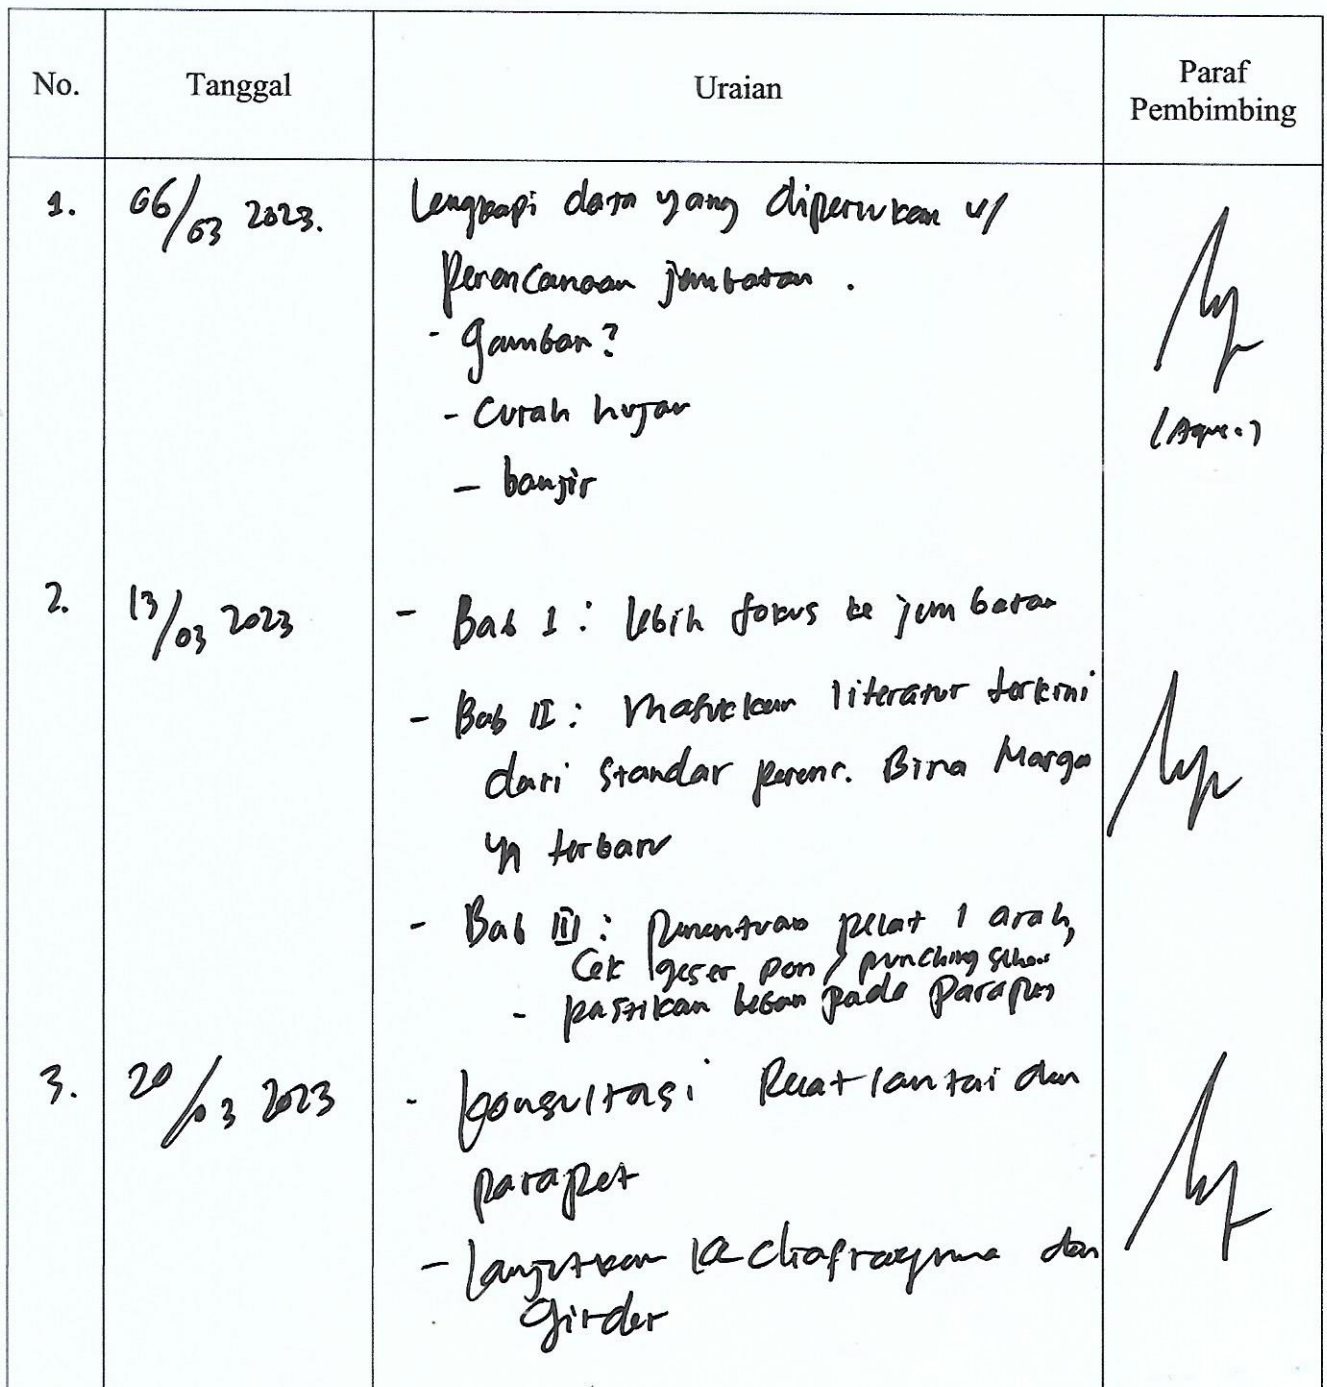 No. Tanggal Uraian Paraf
Pembimbing
1. 06/03 2023. Lengkapi data yang diperlukan u/
perencanaan jembatan.
- gambar?
- Curah hujan
- banjir
2. 13/03 2023 - Bab I : lebih fokus ke jembatan
- Bab II : Masukkan literatur terkini
dari Standar perenc. Bina Marga
yg terbaru
- Bab III : penentuan pelat 1 arah,
Cek geser pon / punching shear
- pastikan beban pada parapet
3. 20/03 2023 - konsultasi pelat lantai dan
parapet
- lanjutkan ke diafragma dan
girder